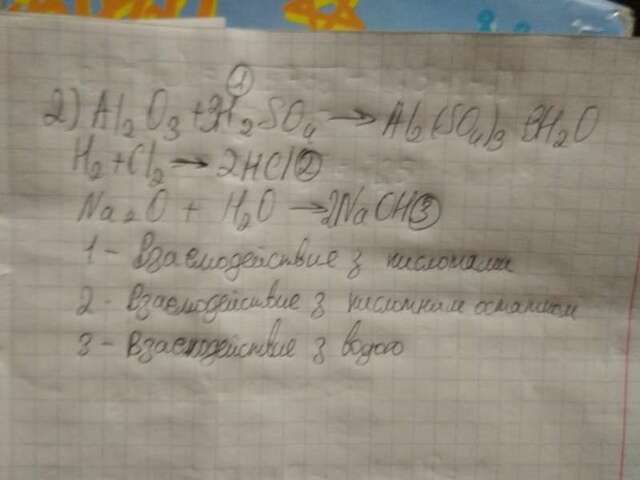 1
2) Al2O3 + 3H2SO4 → Al2(SO4)3 3H2O
H2 + Cl2 → 2HCl 2
Na2O + H2O → 2NaOH 3
1 - Взаемодействие з кислотами
2 - Взаемодействие з кислотним остатком
3 - Взаемодействие з водою